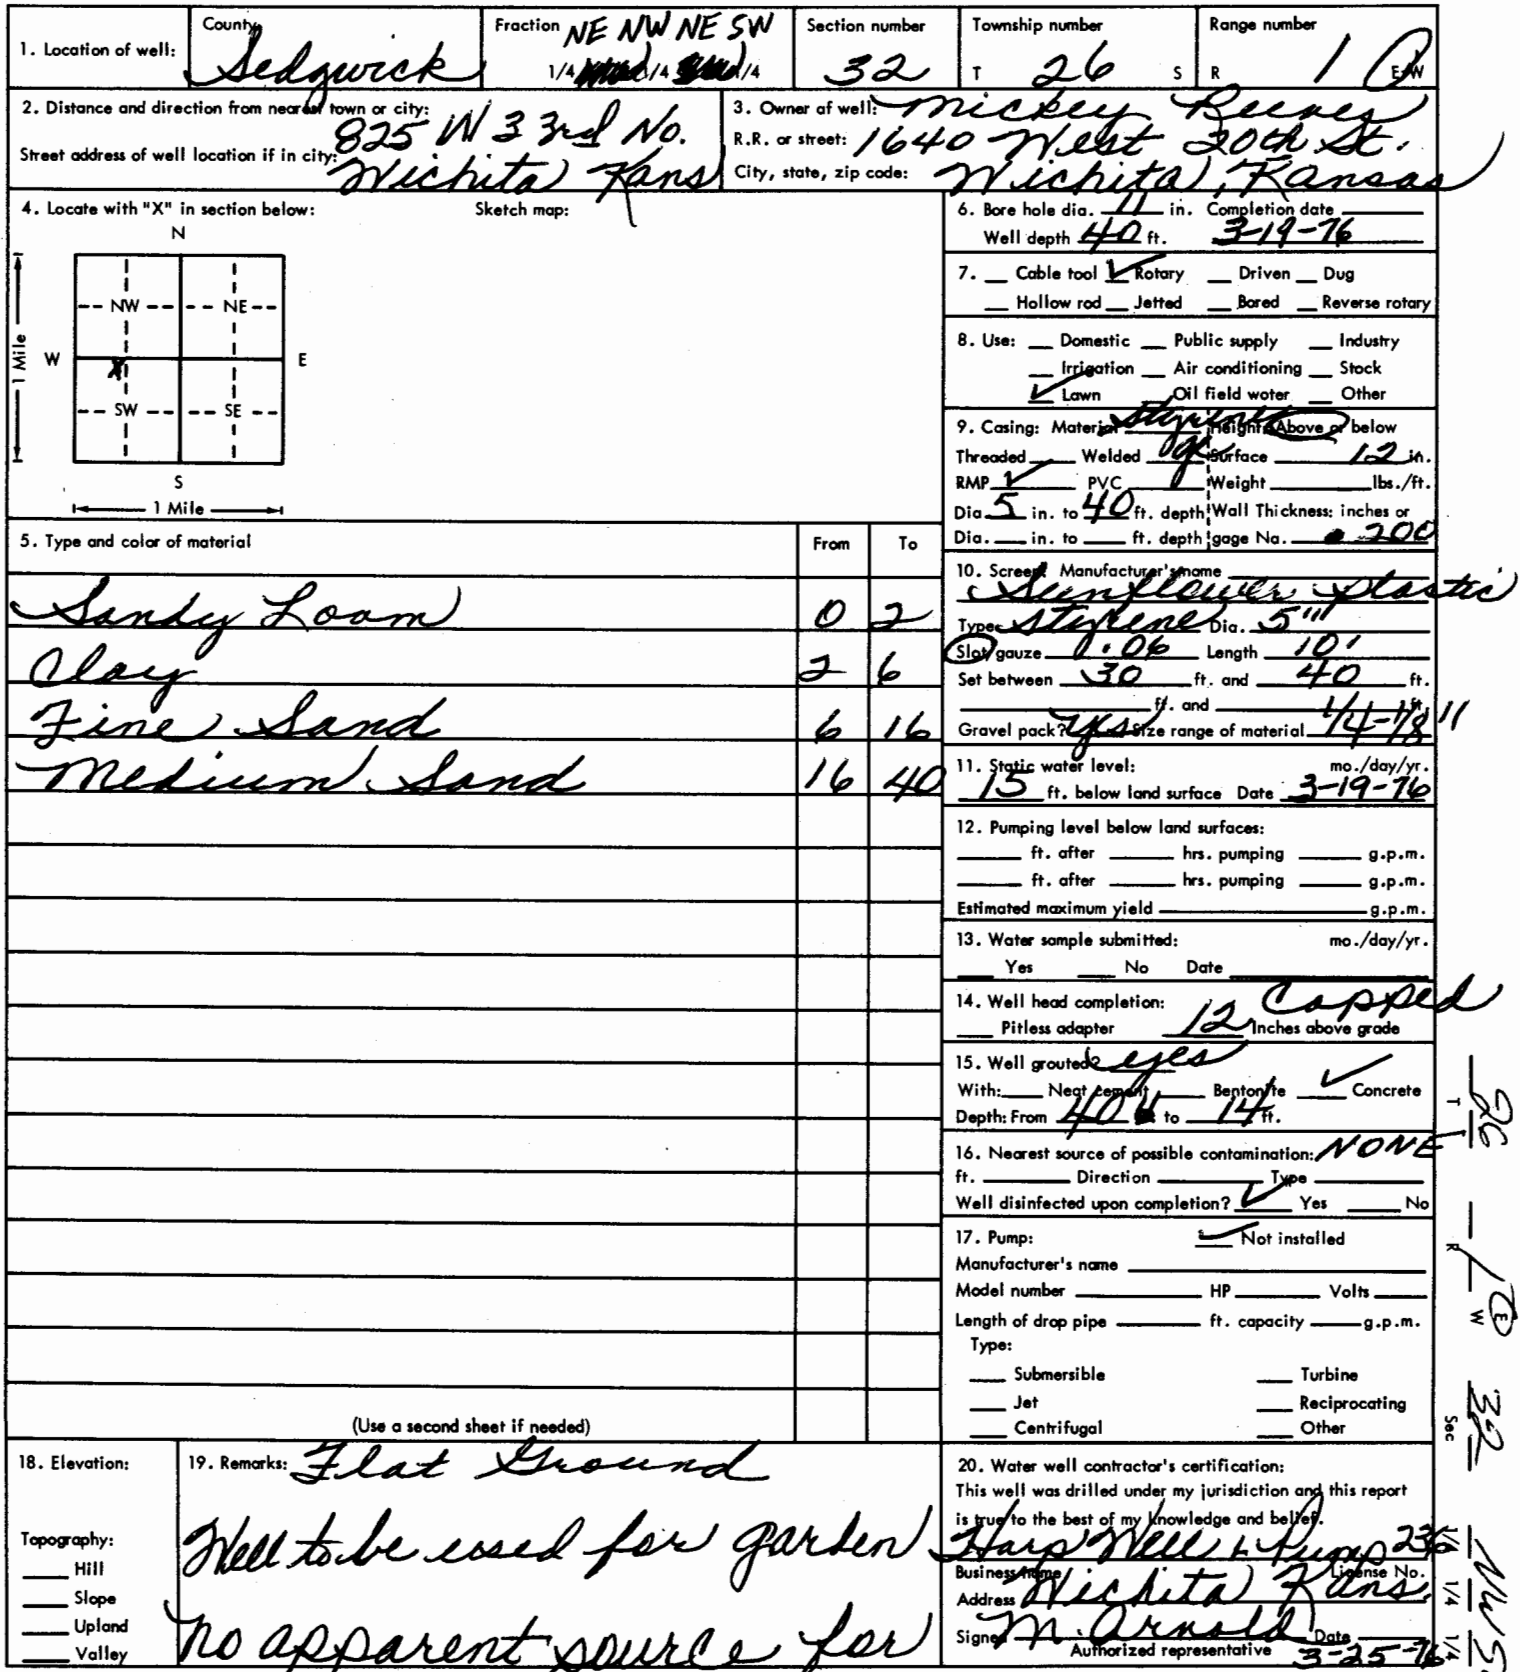 1. Location of well: County Sedgwick Fraction NE NW NE SW 1/4 1/4 1/4 Section number 32 Township number T 26 S Range number R 1 E/W
2. Distance and direction from nearest town or city: 825 W 33rd No.
Street address of well location if in city: Wichita Kans
3. Owner of well: Mickey Reeves
R.R. or street: 1640 West 20th St.
City, state, zip code: Wichita, Kansas
4. Locate with "X" in section below: Sketch map:
N
NW NE
W X E
SW SE
S
1 Mile
1 Mile
6. Bore hole dia. 11 in. Completion date
Well depth 40 ft. 3-19-76
7. Cable tool ✓ Rotary Driven Dug
Hollow rod Jetted Bored Reverse rotary
8. Use: Domestic Public supply Industry
Irrigation Air conditioning Stock
✓ Lawn Oil field water Other
9. Casing: Material Styrene Height: Above or below
Threaded Welded Surface 12 in.
RMP ✓ PVC Weight lbs./ft.
Dia. 5 in. to 40 ft. depth Wall Thickness: inches or
Dia. in. to ft. depth gage No. .200
5. Type and color of material From To
Sandy Loam 0 2
Clay 2 6
Fine Sand 6 16
Medium Sand 16 40
(Use a second sheet if needed)
10. Screen: Manufacturer's name
Sunflower Plastic
Type Styrene Dia. 5"
Slot/gauze .06 Length 10'
Set between 30 ft. and 40 ft.
ft. and ft.
Gravel pack? yes Size range of material 1/4-1/8"
11. Static water level: mo./day/yr.
15 ft. below land surface Date 3-19-76
12. Pumping level below land surfaces:
ft. after hrs. pumping g.p.m.
ft. after hrs. pumping g.p.m.
Estimated maximum yield g.p.m.
13. Water sample submitted: mo./day/yr.
Yes No Date
14. Well head completion: Capped
Pitless adapter 12 Inches above grade
15. Well grouted? yes
With: Neat cement Bentonite ✓ Concrete
Depth: From 40 to 14 ft.
16. Nearest source of possible contamination: NONE
ft. Direction Type
Well disinfected upon completion? ✓ Yes No
17. Pump: ✓ Not installed
Manufacturer's name
Model number HP Volts
Length of drop pipe ft. capacity g.p.m.
Type:
Submersible Turbine
Jet Reciprocating
Centrifugal Other
18. Elevation:
Topography:
Hill
Slope
Upland
Valley
19. Remarks: Flat Ground
Well to be used for garden
no apparent source for
20. Water well contractor's certification:
This well was drilled under my jurisdiction and this report
is true to the best of my knowledge and belief.
Harp Well & Pump 236
Business name License No.
Address Wichita Kans.
Signed M. Arnold Date 3-25-76
Authorized representative
T 26
R 1 E W
Sec 32
1/4 1/4 1/4 NW